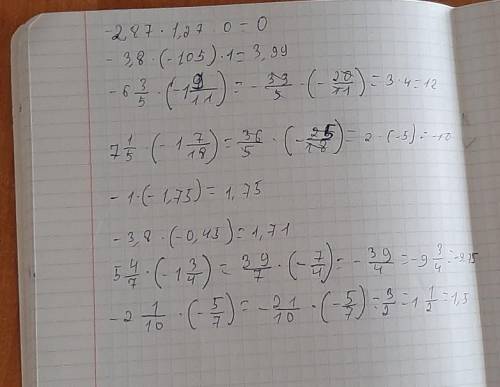 -2,87 · 1,27 · 0 = 0
-3,8 · (-105) · 1 = 3,99
-6 3/5 · (-1 9/11) = -33/5 · (-20/11) = 3·4 = 12
7 1/5 · (-1 7/18) = 36/5 · (-25/18) = 2·(-5) = -10
-1 · (-1,75) = 1,75
-3,8 · (-0,45) = 1,71
5 4/7 · (-1 3/4) = 39/7 · (-7/4) = -39/4 = -9 3/4 = -9,75
-2 1/10 · (-5/7) = -21/10 · (-5/7) = 3/2 = 1 1/2 = 1,5